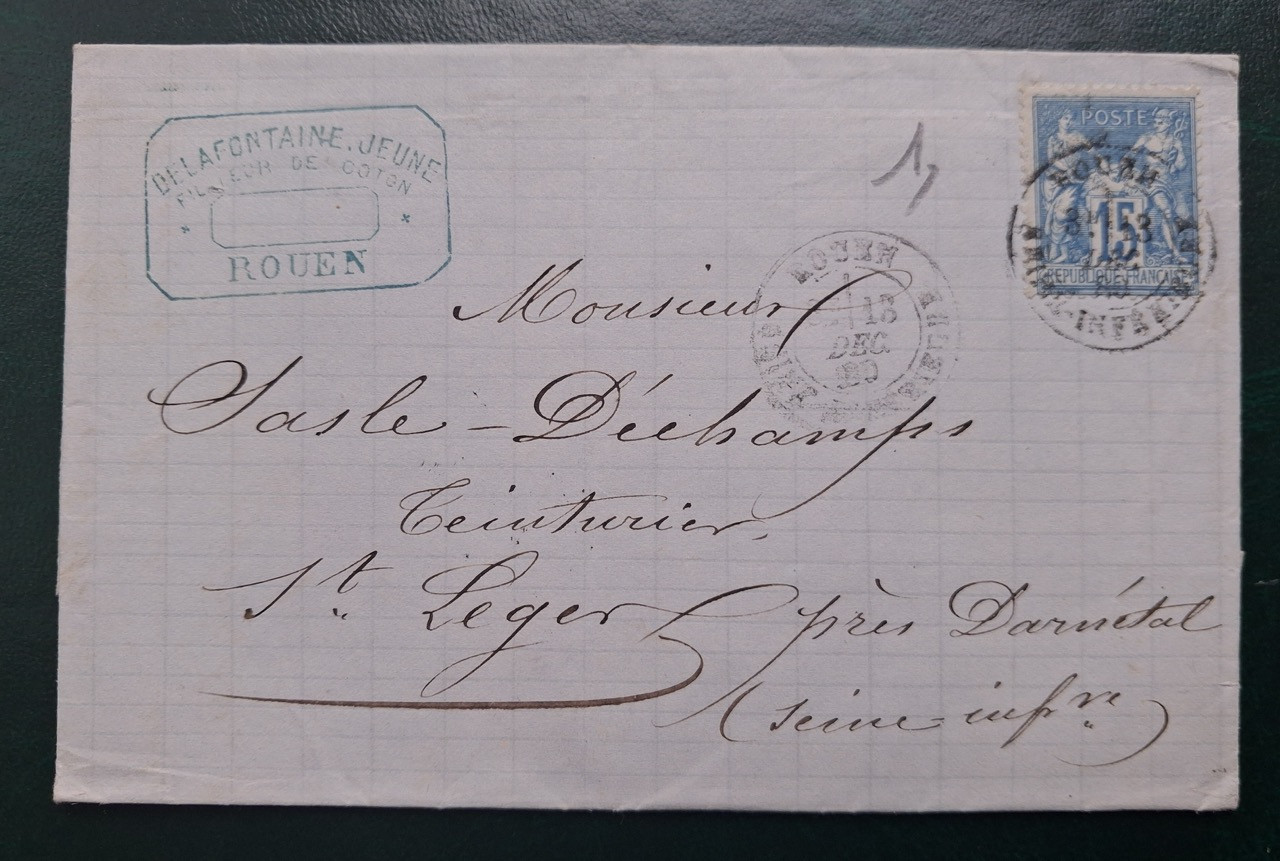 DELAFONTAINE, JEUNE
FILATEUR DE COTON
ROUEN
POSTE
15
REPUBLIQUE FRANCAISE
ROUEN
13
SEINE-INFÉRIEURE
1
ROUEN
13
DEC
80
Monsieur
Sasle-Déchamps
Teinturier,
St. Leger près Darnétal
(seine-infre)